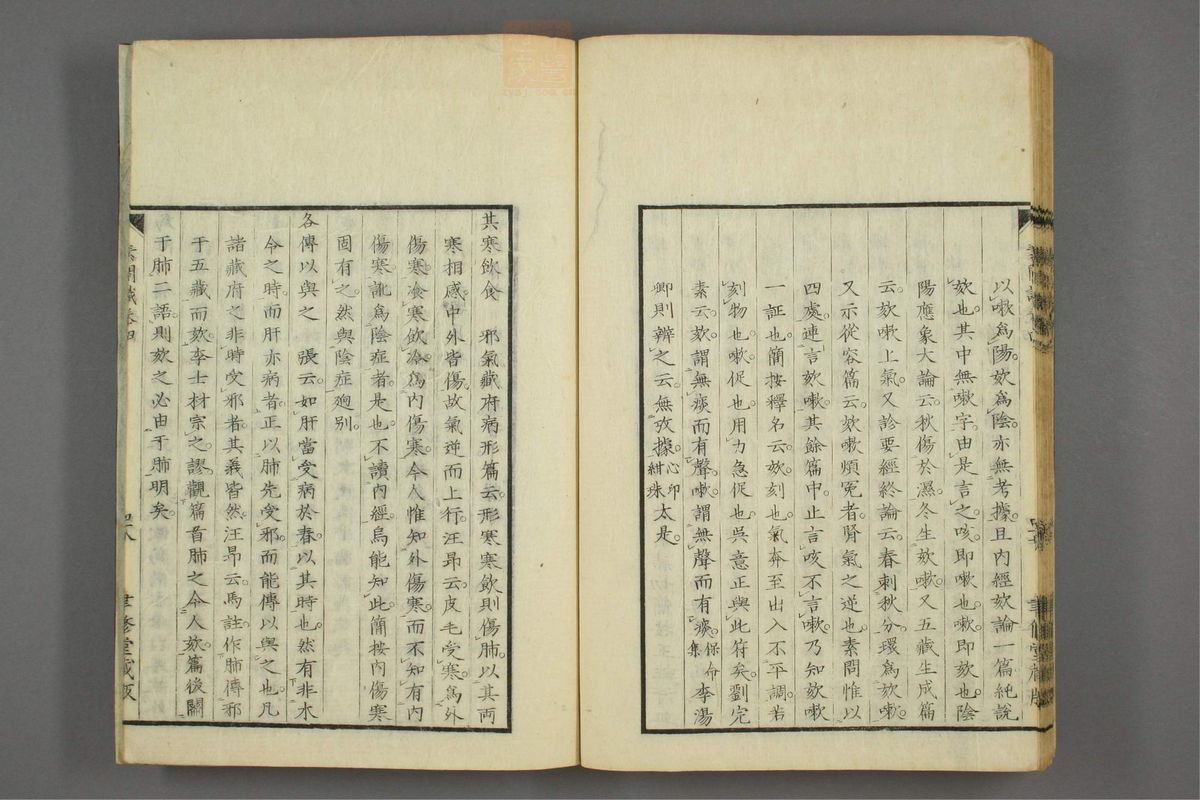 以嗽爲陽。欬爲陰。亦無考據。且內經欬論一篇純說
欬也。其中無嗽字。由是言之。咳即嗽也。嗽即欬也。陰
陽應象大論云。秋傷於濕。冬生欬嗽。又五藏生成篇
云。欬嗽上氣。又診要經終論云。春刺秋分。環爲欬嗽。
又示從容篇云。欬嗽煩冤者。腎氣之逆也。素問惟以
四處連言欬嗽。其餘篇中。止言咳不言嗽。乃知欬嗽
一証也。簡按釋名云。欬。刻也。氣奔至出入不平調若
刻物也。嗽。促也。用力急促也。吳意正與此符矣。劉完
素云。欬。謂無痰而有聲。嗽。謂無聲而有痰。保命集 李湯
卿則辨之云。無攷據。心印紺珠 太是。
其寒飲食 邪氣藏府病形篇云。形寒寒飲則傷肺。以其兩
寒相感。中外皆傷。故氣逆而上行。汪昂云。皮毛受寒。爲外
傷寒。冷寒飲冷。爲內傷寒。今人惟知外傷寒。而不知有內
傷寒。訛爲陰症者。是也。不讀內經。烏能知此。簡按內傷寒
固有之。然與陰症逈別。
各傳以與之 張云。如肝當受病於春。以其時也。然有非木
令之時。而肝亦病者。正以肺先受邪。而能傳以與之也。凡
諸藏府之非時受邪者。其義皆然。汪昂云。馬註作肺傳邪
于五藏而欬。李士材宗之。謬。觀篇首肺之令人欬。篇後關
于肺二語。則欬之必由于肺明矣。
素問識卷四
聿修堂藏版